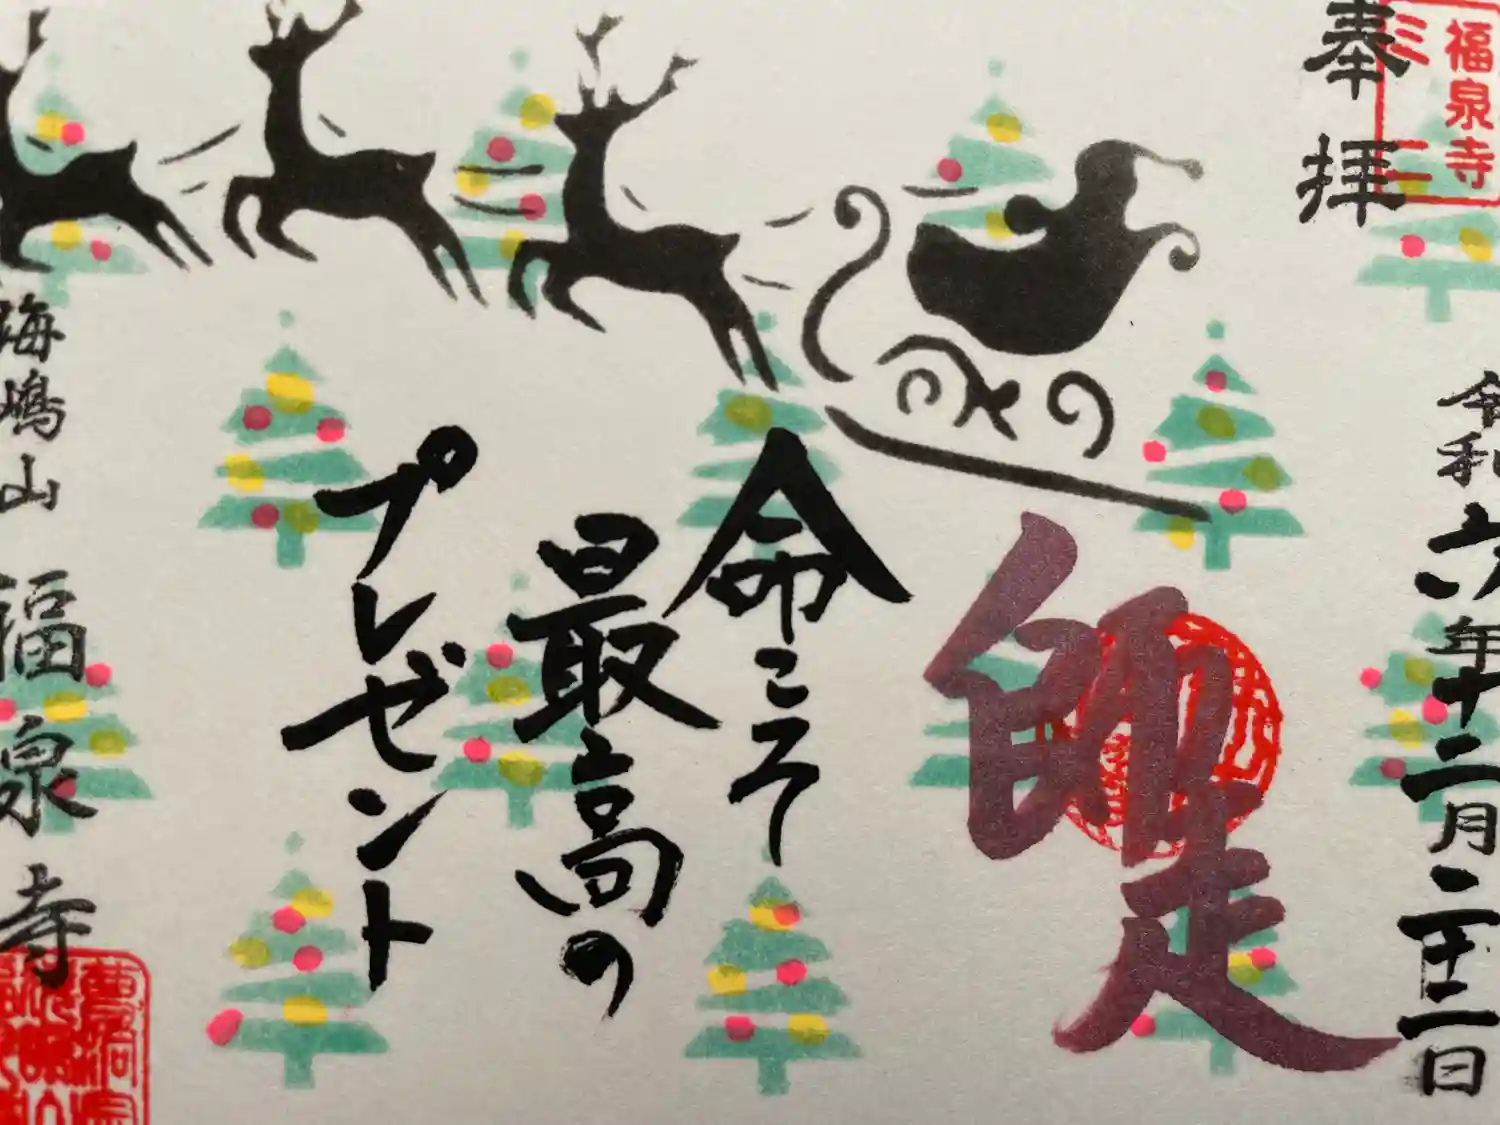 奉拝
福泉寺
令和六年十二月二十二日
師走
命こそ
最高の
プレゼント
海嶋山
福泉寺